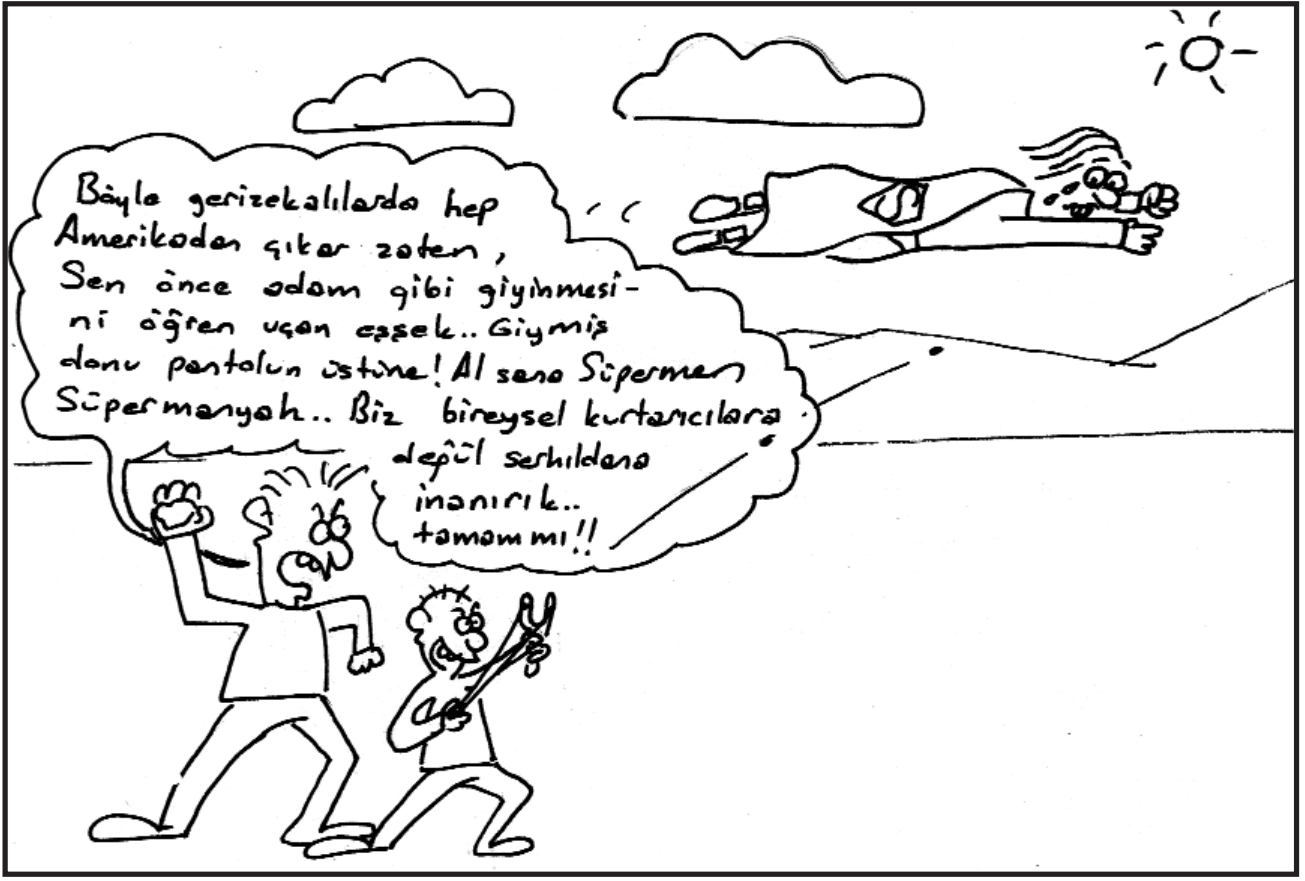 Böyle gerizekalılarda hep
Amerikadan çıkar zaten,
Sen önce adam gibi giyinmesi-
ni öğren uçan eşşek.. Giymiş
donu pantolun üstüne! Al sana Süpermen
Süpermanyak.. Biz bireysel kurtarıcılara
değül serhıldana
inanırık..
tamam mı!!
S